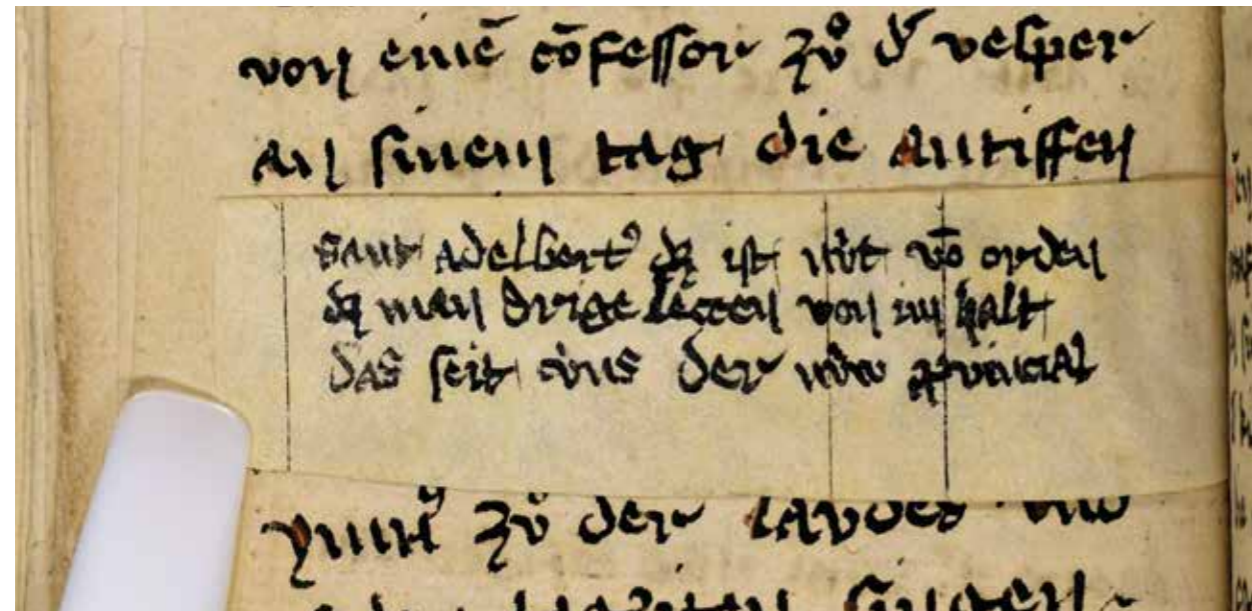 von einē cōfessor zů d' vesper
an sinem tag die antiffen
sant adelbert⁹ dz ist nüt vō orden
dz man drige leccen von im halt
das seit üns der nüw ꝓvincial
ymn zů der laudes